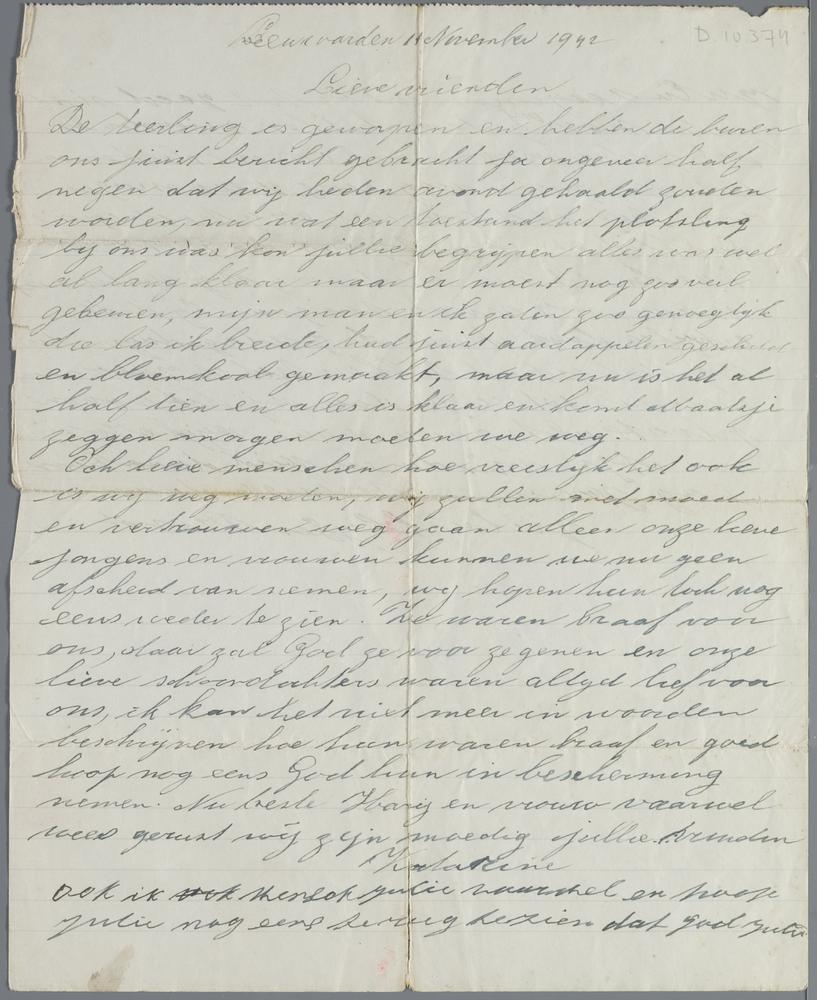 D.10374
Leeuwarden 11 November 1942
Lieve vrienden
De teerling is geworpen en hebben de buren
ons juist bericht gebracht ja ongeveer half
negen dat wij heden avond gehaald zouden
worden, nu wat een toestand het plotsling
bij ons was kon jullie begrijpen alles was wel
al lang klaar maar er moest nog zoo veel
gebeuren, mijn man en ik zaten zoo genoegelijk
die las ik breide, had juist aardappelen geschild
en bloemkool gemaakt, maar nu is het al
half tien en alles is klaar en komt
zeggen morgen moeten we weg.
Och lieve menschen hoe vreeslijk het ook
is wij weg moeten, wij zullen met moed
en vertrouwen weg gaan alleen onze lieve
jongens en vrouwen kunnen we nu geen
afscheid van nemen, wij hopen hun toch nog
eens weder te zien. Ze waren braaf voor
ons, daar zal God ze voor zegenen en onze
lieve schoondochters waren altijd lief voor
ons, ik kan het niet meer in woorden
beschrijven hoe hun waren braaf en goed
hoop nog eens God hun in bescherming
nemen. Nu beste Harij en vrouw vaarwel
wees gerust wij zijn moedig jullie vrienden
Katarine
ook ik wensch julie vaarwel en hoop
julie nog eens terug te zien dat god julie